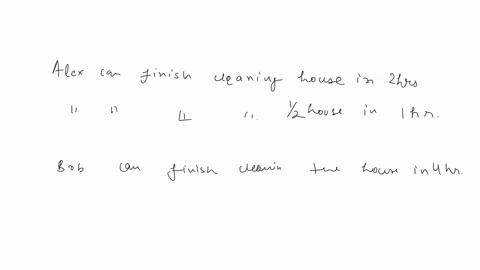 Alex can finish cleaning house in 2hrs.
" " " " 1/2 house in 1 hr.
Bob can finish cleanin the house in 4hr.